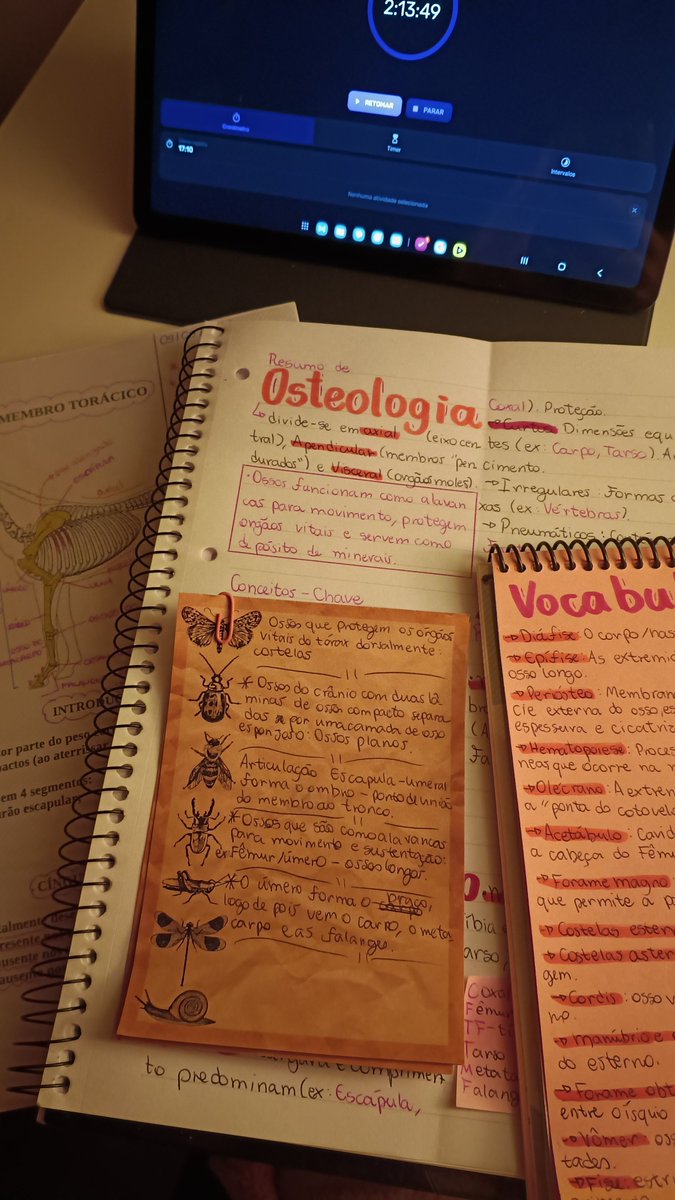 2:13:49
RETOMAR
PARAR
Cronômetro
Timer
Intervalos
17:10
Nenhuma atividade selecionada
MEMBRO TORÁCICO
INTRODU
or parte do peso
pactos (ao aterris
em 4 segmentos:
urão escapular,
Resumo de
Osteologia
divide-se em axial (eixo cen
tral), Apendicular (membros "pen
durados") e Visceral (orgãos moles).
• Ossos funcionam como alavan
cas para movimento, protegem
orgãos vitais e servem como
depósito de minerais.
Conceitos - Chave
Ossos que protegem os orgãos
vitais do tórax dorsalmente:
costelas
* Ossos do crânio com duas lâ
minas de osso compacto separa
das por uma camada de osso
esponjoso: Ossos planos.
Articulação Escapula-umeral
forma o ombro - ponto de união
do membro ao tronco.
* Ossos que são como alavancas
para movimento e sustentação:
ex Fêmur/úmero - ossos longos.
* O úmero forma o braço,
logo depois vem o carpo, o meta
carpo e as falange.
to predominam (ex: Escápula,
Coxal). Proteção.
Curtos Dimensões equ
tes (ex: Carpo, Tarso). A
cimento.
Irregulares: Formas
xas (ex: Vértebras).
Pneumáticos:
Coxal
Fêmur
TF-ti
Tarso
Metata
Falang
Vocabu
Diáfise: O corpo/has
Epífise: As extremi
osso longo.
Periósteo: Membran
cie externa do osso, es
espessura e cicatriz
Hematopoiese: Proces
neas que ocorre na
Olecrano: A extren
a "ponta do cotovel
Acetábulo: Cavid
a cabeça do Fêmu
Forame magno:
que permite a p
Costelas ester
Costelas aster
gem.
Cordis: osso v
no.
manúbrio e
do esterno.
Forame obt
entre o ísquio
Vômer oss
tades.
Fise: estr